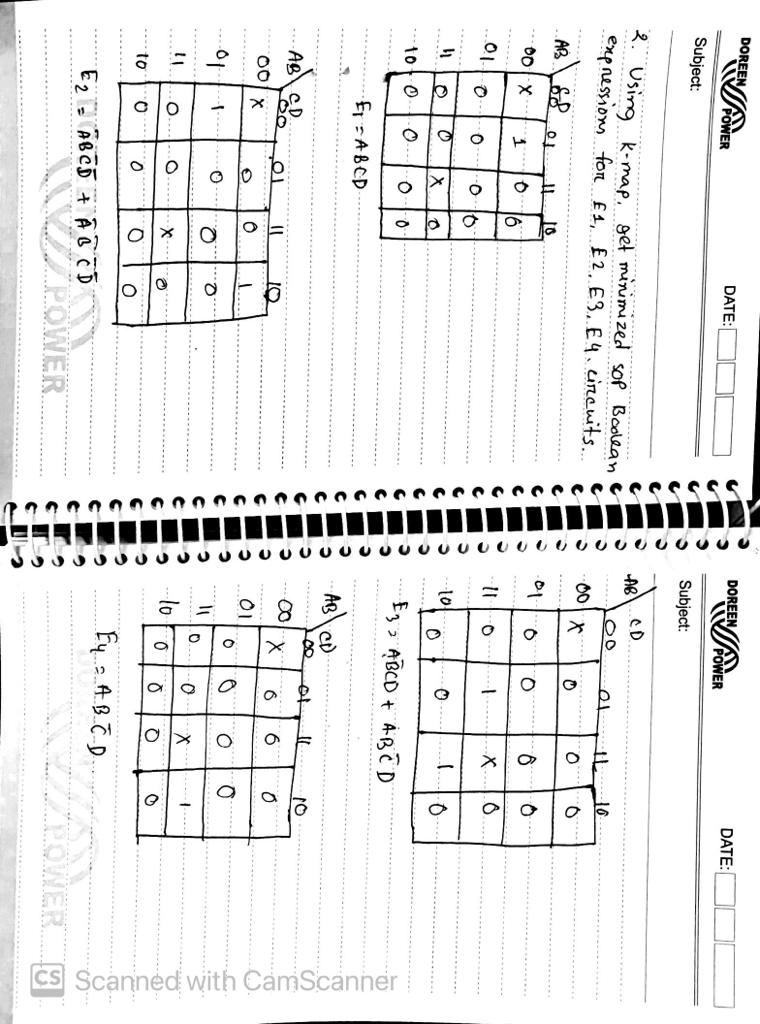 DOREEN
POWER
DATE:
Subject:
2. Using k-map, get minimized sop Boolean
expressions for E1, E2, E3, E4. circuits.
AB CD 00 01 11 10
00 X 1 0 0
01 0 0 0 0
11 0 0 X 0
10 0 0 0 0
E1 = ABCD
AB CD 00 01 11 10
00 X 0 0 1
01 1 0 0 0
11 0 0 X 0
10 0 0 0 0
E2 = A̅BC̅D̅ + A̅B̅CD̅
POWER
DOREEN
POWER
DATE:
Subject:
AB CD 00 01 11 10
00 X 0 0 0
01 0 0 0 0
11 0 1 X 0
10 0 1 0
E3 = AB̅CD + ABC̅D
AB CD 00 01 11 10
00 X 0 0 0
01 0 0 0 0
11 0 0 X 1
10 0 0 0 0
E4 = ABC̅D
POWER
CS Scanned with CamScanner